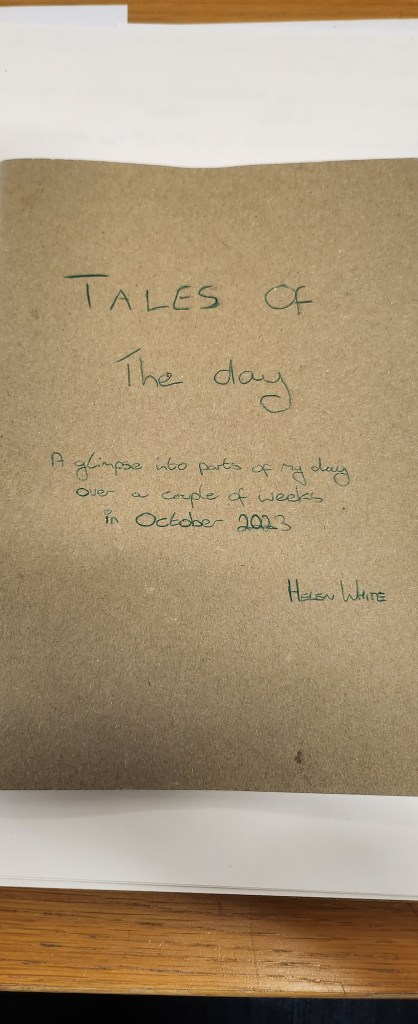 TALES OF
The day
A glimpse into parts of my day
over a couple of weeks
in October 2023
HELEN WHITE